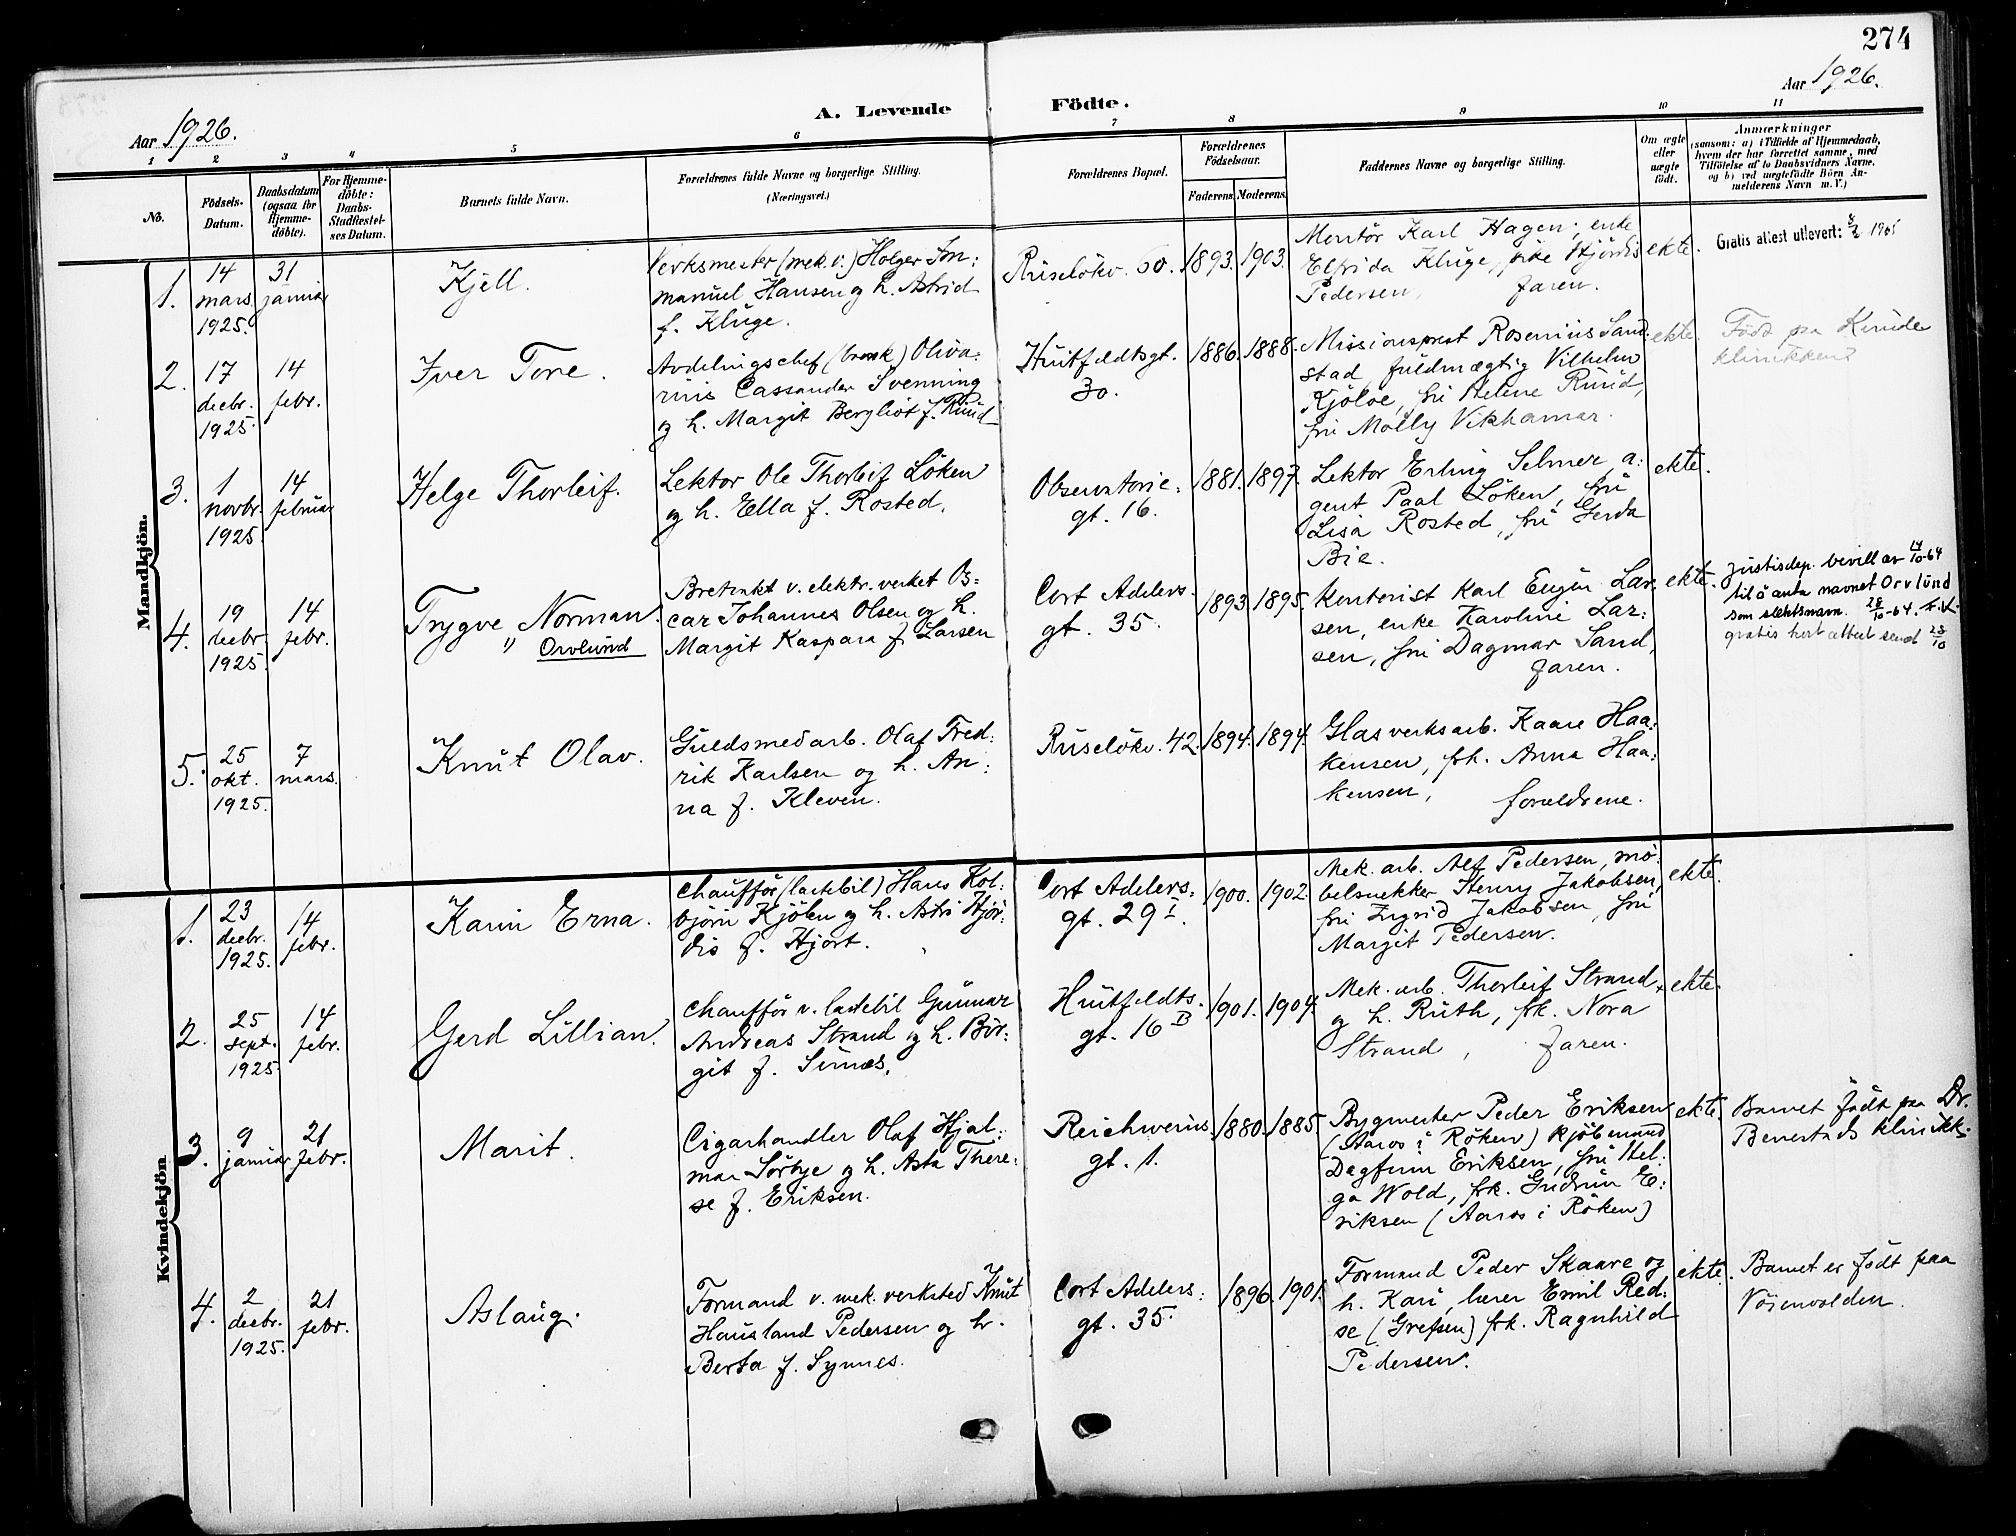 274
Aar 1926.
A. Levende Födte.
Aar 1926.
1 2 3 4 5 6 7 8 9 10 11
No.
Födsels-
Datum.
Daabsdatum
(ogsaa for
Hjemme-
döbte).
For Hjemme-
döbte:
Daabs-
Stadfæstel-
ses Datum.
Barnets fulde Navn.
Forældrenes fulde Navne og borgerlige Stilling.
(Næringsvei.)
Forældrenes Bopæl.
Forældrenes
Födselsaar.
Faderens. Moderens.
Faddernes Navne og borgerlige Stilling.
Om ægte
eller
uægte
födt.
Anmærkninger
(saasom: a) i Tilfælde af Hjemmedaab,
hvem der har forrettet samme, med
Tilföielse af to Daabsvidners Navne,
og b) ved uægtefödte Börn An-
melderens Navn m. V.)
Mandkjön.
1.
14
mars
1925.
31
januar
Kjell.
Verksmester (mek. v.) Holger Im=
manuel Hansen og h. Astrid
f. Kluge.
Ruselökv. 60.
1893. 1903.
Montör Karl Hagen, enke
Elfrida Kluge, frk. Hjördis
Pedersen, faren.
ekte.
Gratis attest utlevert:
2.
17
decbr.
1925.
14
febr.
Iver Tore.
Avdelingschef (bank) Oliva=
rius Cassander Svenning
og h. Margit Bergliot f. Ruud
Huitfeldtsgt.
30.
1886. 1888.
Missionsprest Rosenius Sand=
stad, fuldmægtig Vilhelm
Kjölöe, fru Helene Ruud,
fru Molly Vikhamar.
ekte.
Född paa Kvinde
klinikken
3.
1
novbr.
1925
14
februar
Helge Thorleif.
Lektor Ole Thorleif Löken
og h. Ella f. Rosted.
Observatorie=
gt. 16.
1881. 1897.
Lektor Erling Selmer, a=
gent Paal Löken, fru
Lisa Rosted, fru Gerda
Bie.
ekte.
4.
19
decbr
1925.
14
febr.
Trygve Norman.
" Orvlund
Bretenkt v. elektr. verket Os=
car Johannes Olsen og h.
Margit Kaspara f. Larsen
Cort Adelers
gt. 35.
1893. 1895.
Kontorist Karl Eugen Lar=
sen, enke Karoline Lar=
sen, fru Dagmar Sand,
faren.
ekte.
Justisdep. bevill av 14/10-64
til å anta navnet Orvlund
som slektsnavn. 28/10-64.
gratis kort attest sendt 28/10
5.
25
okt.
1925.
7
mars.
Knut Olav.
Guldsmedarb. Olaf Fred=
rik Karlsen og h. An=
na f. Kleven.
Ruselökv. 42.
1894. 1894.
Glasverksarb. Kaare Haa=
kensen, frk. Anna Haa=
kensen, foreldrene.
Kvindekjön
1.
23
decbr.
1925.
14
febr.
Karin Erna.
Chaufför (lastebil) Hans Kol=
björn Kjölen og h. Astri Hjör=
dis f. Hjort.
Cort Adelers=
gt. 29 I.
1900. 1902.
Mek. arb. Alf Pedersen, mö=
belsnekker Henry Jakobsen,
fru Ingrid Jakobsen, fru
Margit Pedersen.
ekte.
2.
25
sept.
1925
14
febr.
Gerd Lillian.
Chaufför v. lastebil Gunnar
Andreas Strand og h. Bor=
git f. Simæs.
Huitfeldts.
gt. 16 B
1901. 1904.
Mek. arb. Thorleif Strand
og h. Ruth, frk. Nora
Strand, faren.
ekte.
3.
9
januar
21
febr.
Marit.
Cigarhandler Olaf Hjal=
mar Sörbye og h. Asta There=
se f. Eriksen.
Reichweins.
gt. 1.
1880. 1885.
Bygmester Peder Eriksen
(Aaros i Röken) kjöbmand
Dagfinn Eriksen, fru Hel=
ga Wold, frk. Gudrun E=
riksen (Aaros i Röken)
ekte.
Barnet född paa Dr.
Benestads klinikk.
4.
2
decbr.
1925.
21
febr.
Aslaug.
Formand v. mek. verksted Knut
Hausland Pedersen og h.
Berta f. Synnes.
Cort Adelers=
gt. 35.
1896. 1901.
Formand Peder Skaare og
h. Kari, lærer Emil Red=
se (Grefsen) frk. Ragnhild
Pedersen.
ekte.
Barnet er födt paa
Vöienvolden.